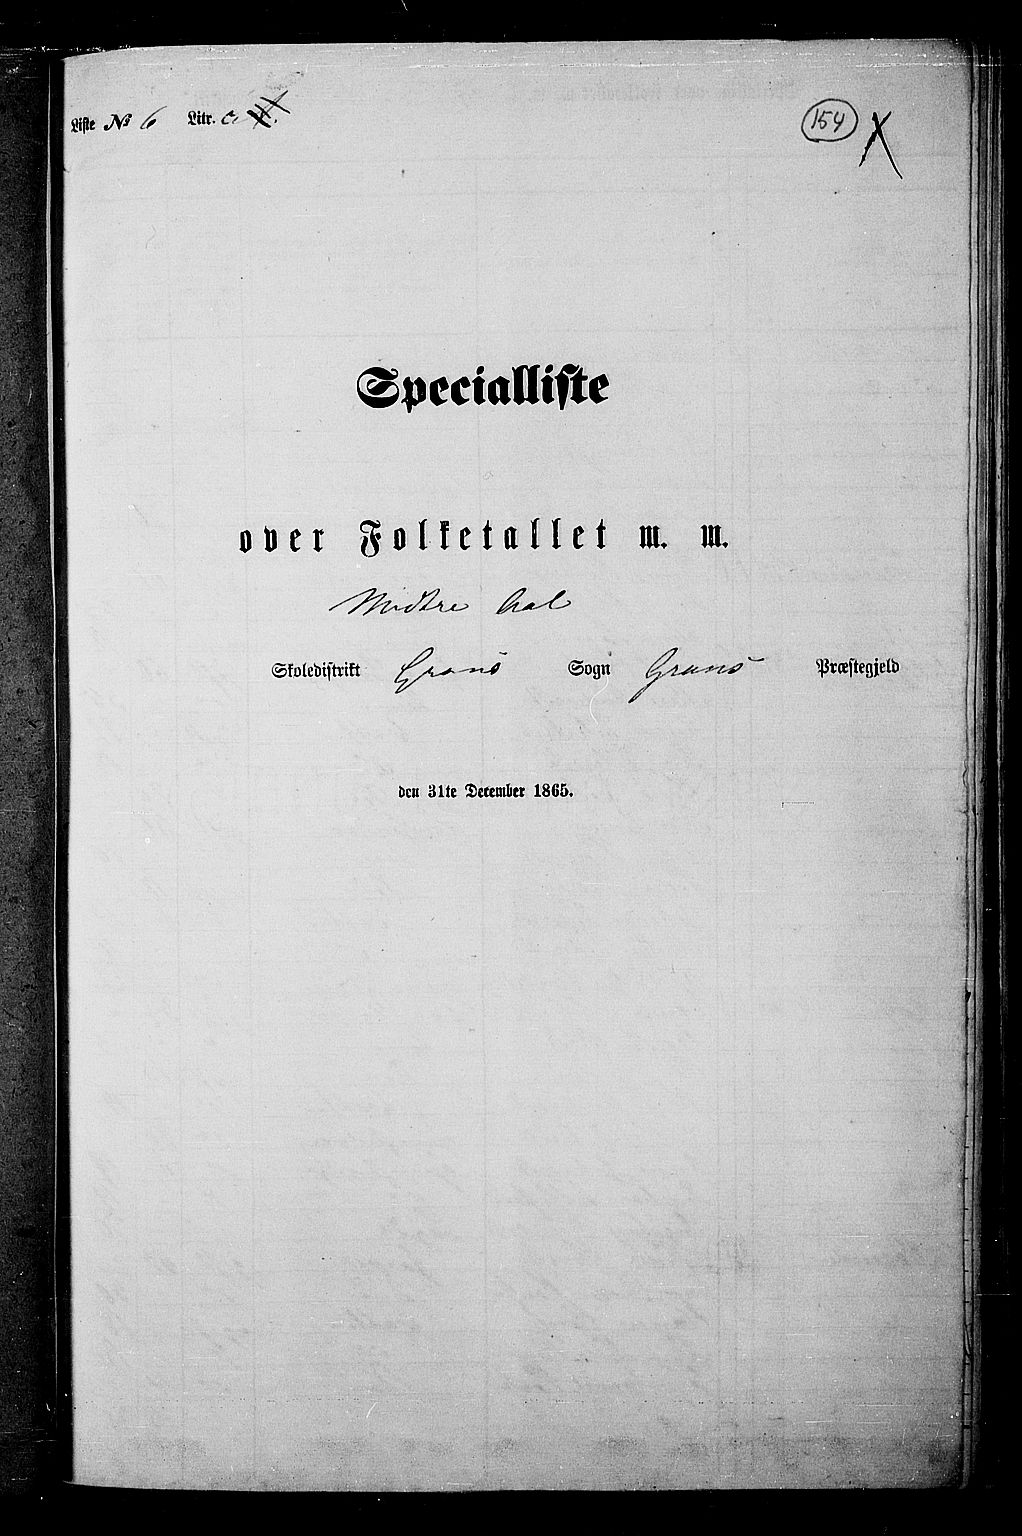 Liste № 6 Litr. c.
154
Specialliste
over Folketallet m. m.
Midtre Aal
Skoledistrikt Grans Sogn Grans Præstegjeld
den 31te December 1865.